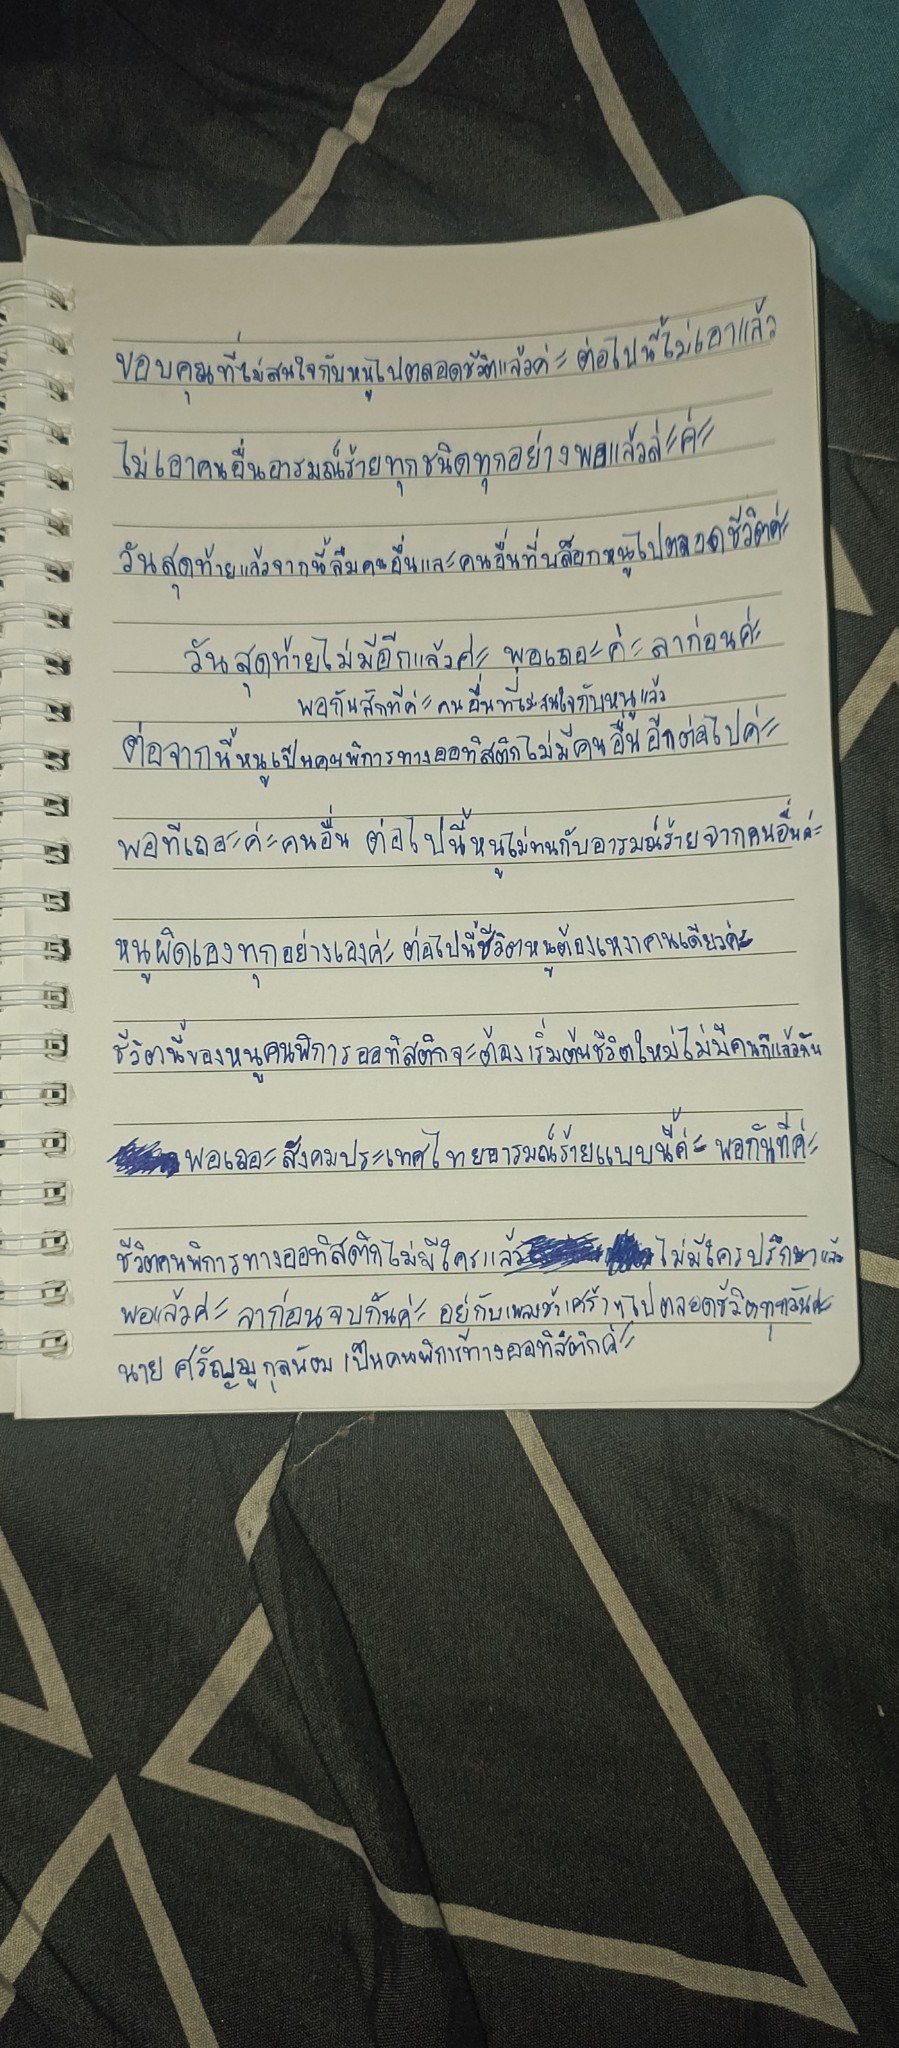 ขอบคุณที่ไม่สนใจกับหนูไปตลอดชีวิตแล้วค่ะ ต่อไปนี้ไม่เอาแล้ว
ไม่เอาคนอื่นอารมณ์ร้ายทุกชนิดทุกอย่างพอแล้วล่ะค่ะ
วันสุดท้ายแล้วจากนี้ลืมคนอื่นและคนอื่นที่บล็อกหนูไปตลอดชีวิตค่ะ
วันสุดท้ายไม่มีอีกแล้วค่ะ พอเถอะค่ะ ลาก่อนค่ะ
พอกันสักทีค่ะ คนอื่นที่ไม่สนใจกับหนูแล้ว
ต่อจากนี้หนูเป็นคนพิการทางออทิสติกไม่มีคนอื่นอีกต่อไปค่ะ
พอทีเถอะค่ะคนอื่น ต่อไปนี้หนูไม่ทนกับอารมณ์ร้ายจากคนอื่นค่ะ
หนูผิดเองทุกอย่างเองค่ะ ต่อไปนี้ชีวิตหนูต้องเหงาคนเดียวค่ะ
ชีวิตนี้ของหนูคนพิการออทิสติกจะต้องเริ่มต้นชีวิตใหม่ไม่มีคนอื่นแล้ว
พอเถอะ สังคมประเทศไทยอารมณ์ร้ายแบบนี้ค่ะ พอกันทีค่ะ
ชีวิตคนพิการทางออทิสติกไม่มีใครแล้ว ไม่มีใครปรึกษาแล้ว
พอแล้วค่ะ ลาก่อนจบกันค่ะ อยู่กับเพลงช้าเศร้าๆไปตลอดชีวิตทุกวันค่ะ
นาย ศรัญญู กุลน้อม เป็นคนพิการทางออทิสติกค่ะ